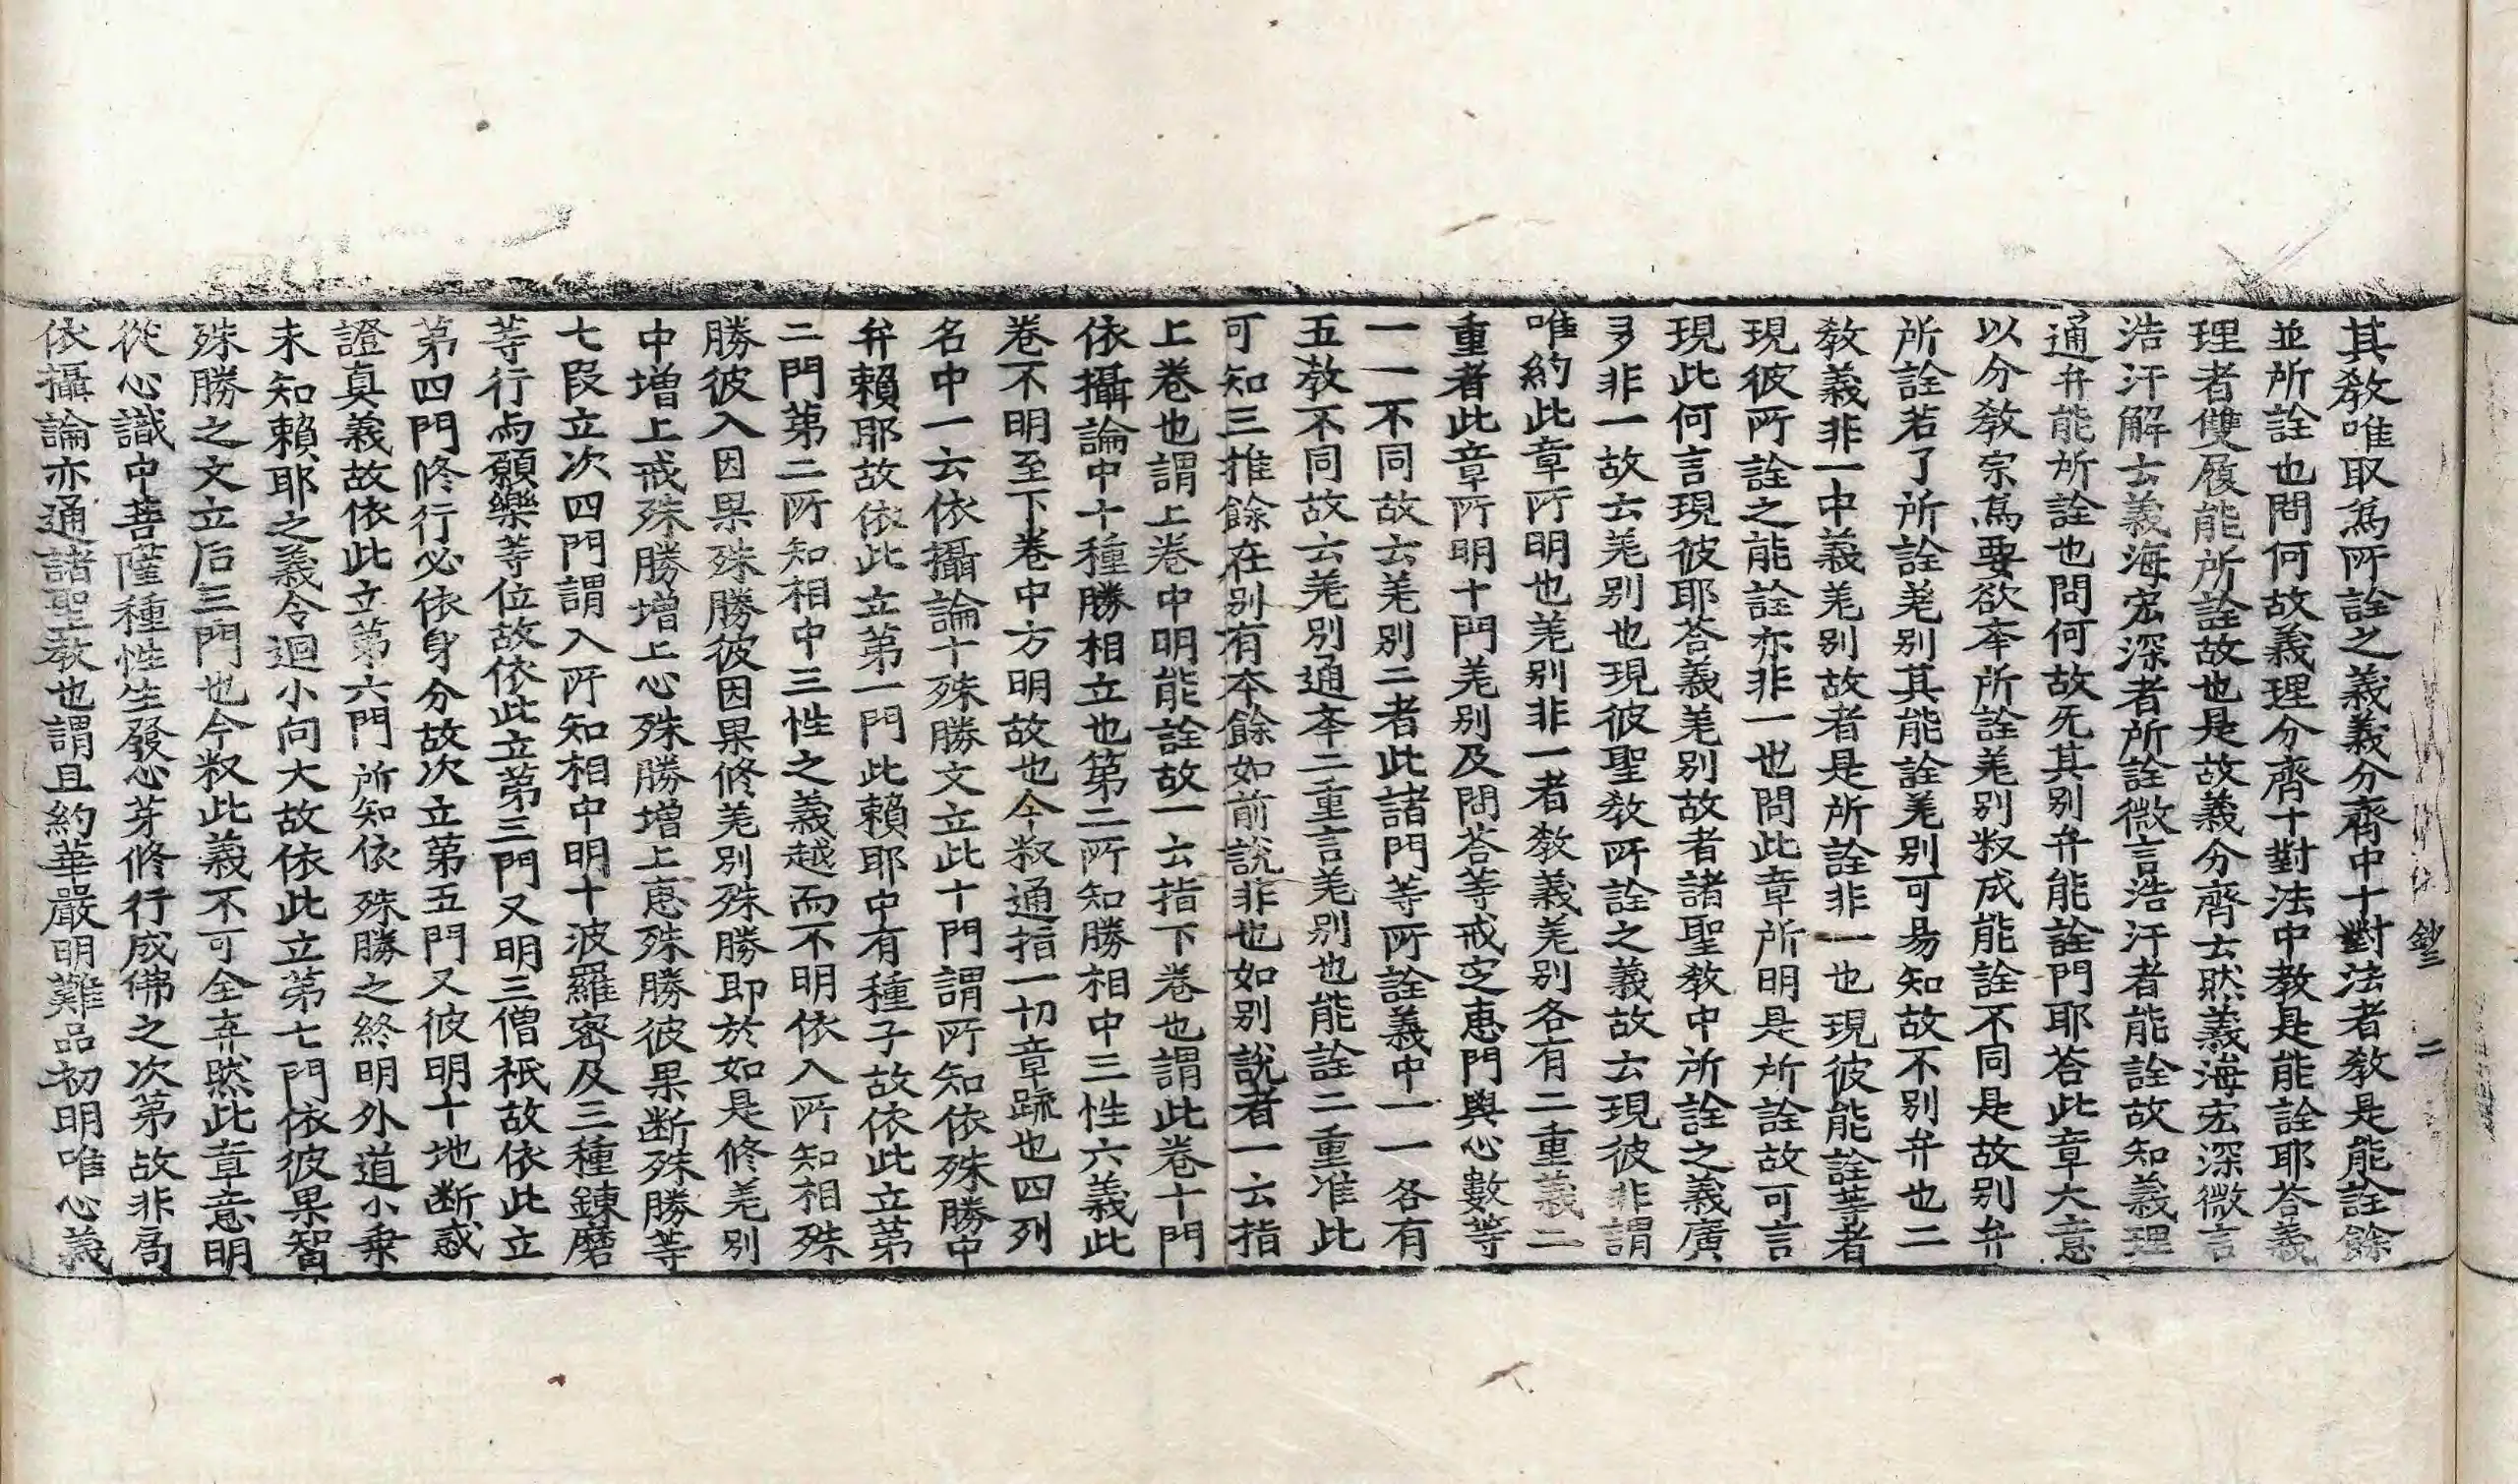 鈔三 二
其教唯取爲所詮之義義分齊中十對法者教是能詮餘
並所詮也問何故義理分齊十對法中教是能詮耶荅義
理者雙履能所詮故也是故義分齊士㦲義海宏深微言
浩汗解云義海宏深者所詮微言浩汗者能詮故知義理
通弁能所詮也問何故旡其别弁能詮門耶荅此章大意
以分教宗爲要欲夲所詮𦍌别㭊成能詮不同是故别弁
所詮若了所詮𦍌别其能詮𦍌别可易知故不别弁也二
教義非一中義𦍌别故者是所詮非一也現彼能詮䓁者
現彼所詮之能詮亦非一也問此章所明是所詮故可言
現此何言現彼耶荅義𦍌别故者諸聖教中所詮之義廣
多非一故云𦍌别也現彼聖教所詮之義故云現彼非謂
唯約此章所明也𦍌别非一者教義𦍌别各有二重義二
重者此章所明十門𦍌别及問荅等戒㝎恵門與心數等
一一不同故云𦍌别二者此諸門等所詮義中一一各有
五教不同故云𦍌别通夲二重言𦍌别也能詮二重准此
可知三推餘在别有本餘如前說非也如别說者一云指
上卷也謂上卷中明能詮故一云指下卷也謂此卷十門
依攝論中十種勝相立也第二所知勝相中三性六義此
卷不明至下卷中方明故也今㭊通指一切章䟽也四列
名中一云依攝論十殊勝文立此十門謂所知依殊勝中
弁賴耶故依此立第一門此賴耶中有種子故依此立第
二門第二所知相中三性之義越而不明依入所知相殊
勝彼入因果殊勝彼因果修𦍌别殊勝即於如是修𦍌别
中增上戒殊勝增上心殊勝增上恵殊勝彼果断殊勝等
七段立次四門謂入所知相中明十波羅密及三種鍊磨
等行尚願樂等位故依此立第三門又明三僧祇故依此立
第四門修行必依身分故次立第五門又彼明十地断惑
證真義故依此立第六門所知依殊勝之終明外道小乗
未知賴耶之義令迴小向大故依此立第七門依彼果智
殊勝之文立后三門也今㭊此義不可全弃然此章意明
從心識中菩薩種性生發心芽修行成佛之次第故非局
依攝論亦通諸聖教也謂且約華嚴明難品初明唯心義